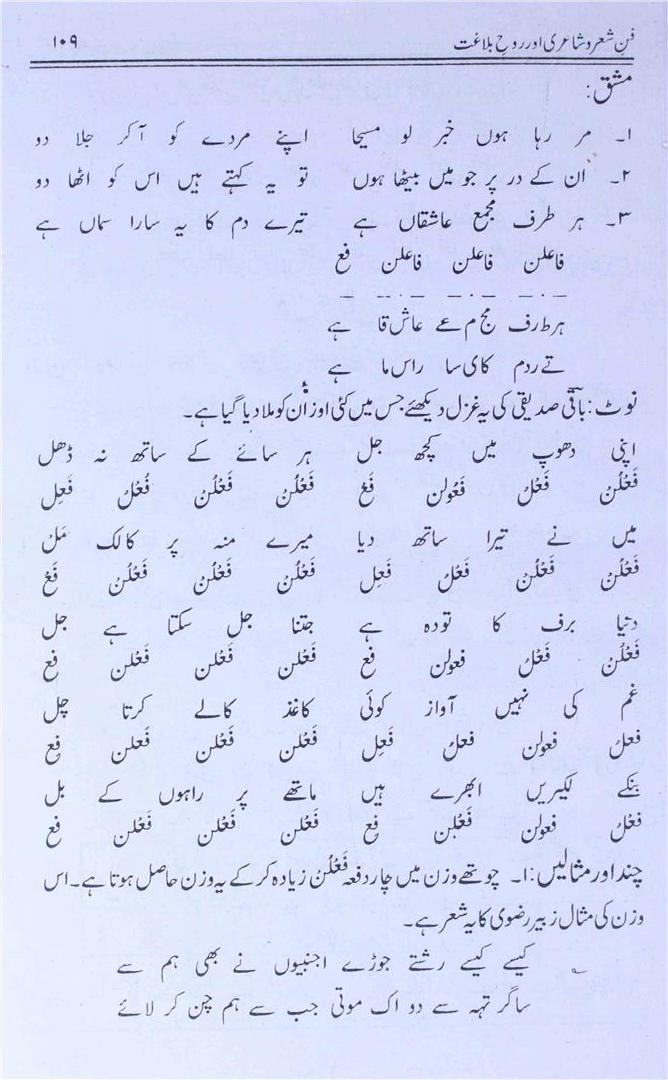 فنِ شعر و شاعری اور روحِ بلاغت ۱۰۹
مشق:
۱۔ مر رہا ہوں خبر لو مسیحا اپنے مردے کو آ کر جلا دو
۲۔ ان کے در پر جو میں بیٹھا ہوں تو یہ کہتے ہیں اس کو اٹھا دو
۳۔ ہر طرف مجمعِ عاشقاں ہے تیرے دم کا یہ سارا سماں ہے
فاعلن فاعلن فاعلن فع
ہر ط رف مج م عے عاش قا ہے
تے ر دم کا ی سا راس ما ہے
نوٹ: باقی صدیقی کی یہ غزل دیکھئے جس میں کئی اوزان کو ملا دیا گیا ہے۔
اپنی دھوپ میں کچھ جل ہر سائے کے ساتھ نہ ڈھل
فَعْلُنْ فَعْلُ فَعُولن فَعْ فَعْلُنْ فَعْلُنْ فُعْلُ فَعِل
میں نے تیرا ساتھ دیا میرے منہ پر کالک مَلْ
فَعْلُنْ فَعْلُنْ فَعْلُ فَعِل فَعْلُنْ فَعْلُنْ فَعْلُنْ فَعْ
دنیا برف کا تودہ ہے جتنا جل سکتا ہے جل
فَعْلُنْ فَعْلُ فعولن فع فَعْلن فَعْلن فَعْلن فع
غم کی نہیں آواز کوئی کاغذ کالے کرتا چل
فعلُ فعولن فعلُ فَعِل فَعْلن فَعْلن فعلن فع
بنکے لکیریں ابھرے ہیں ماتھے پر راہوں کے بل
فَعْلُ فعولن فَعْلن فع فَعْلن فَعْلن فَعْلن فع
چند اور مثالیں: ۱۔ چوتھے وزن میں چار دفعہ فَعْلُنْ زیادہ کر کے یہ وزن حاصل ہوتا ہے۔ اس
وزن کی مثال زبیر رضوی کا یہ شعر ہے۔
کیسے کیسے رشتے جوڑے اجنبیوں نے بھی ہم سے
ساگر تہہ سے دو اک موتی جب سے ہم چن کر لائے